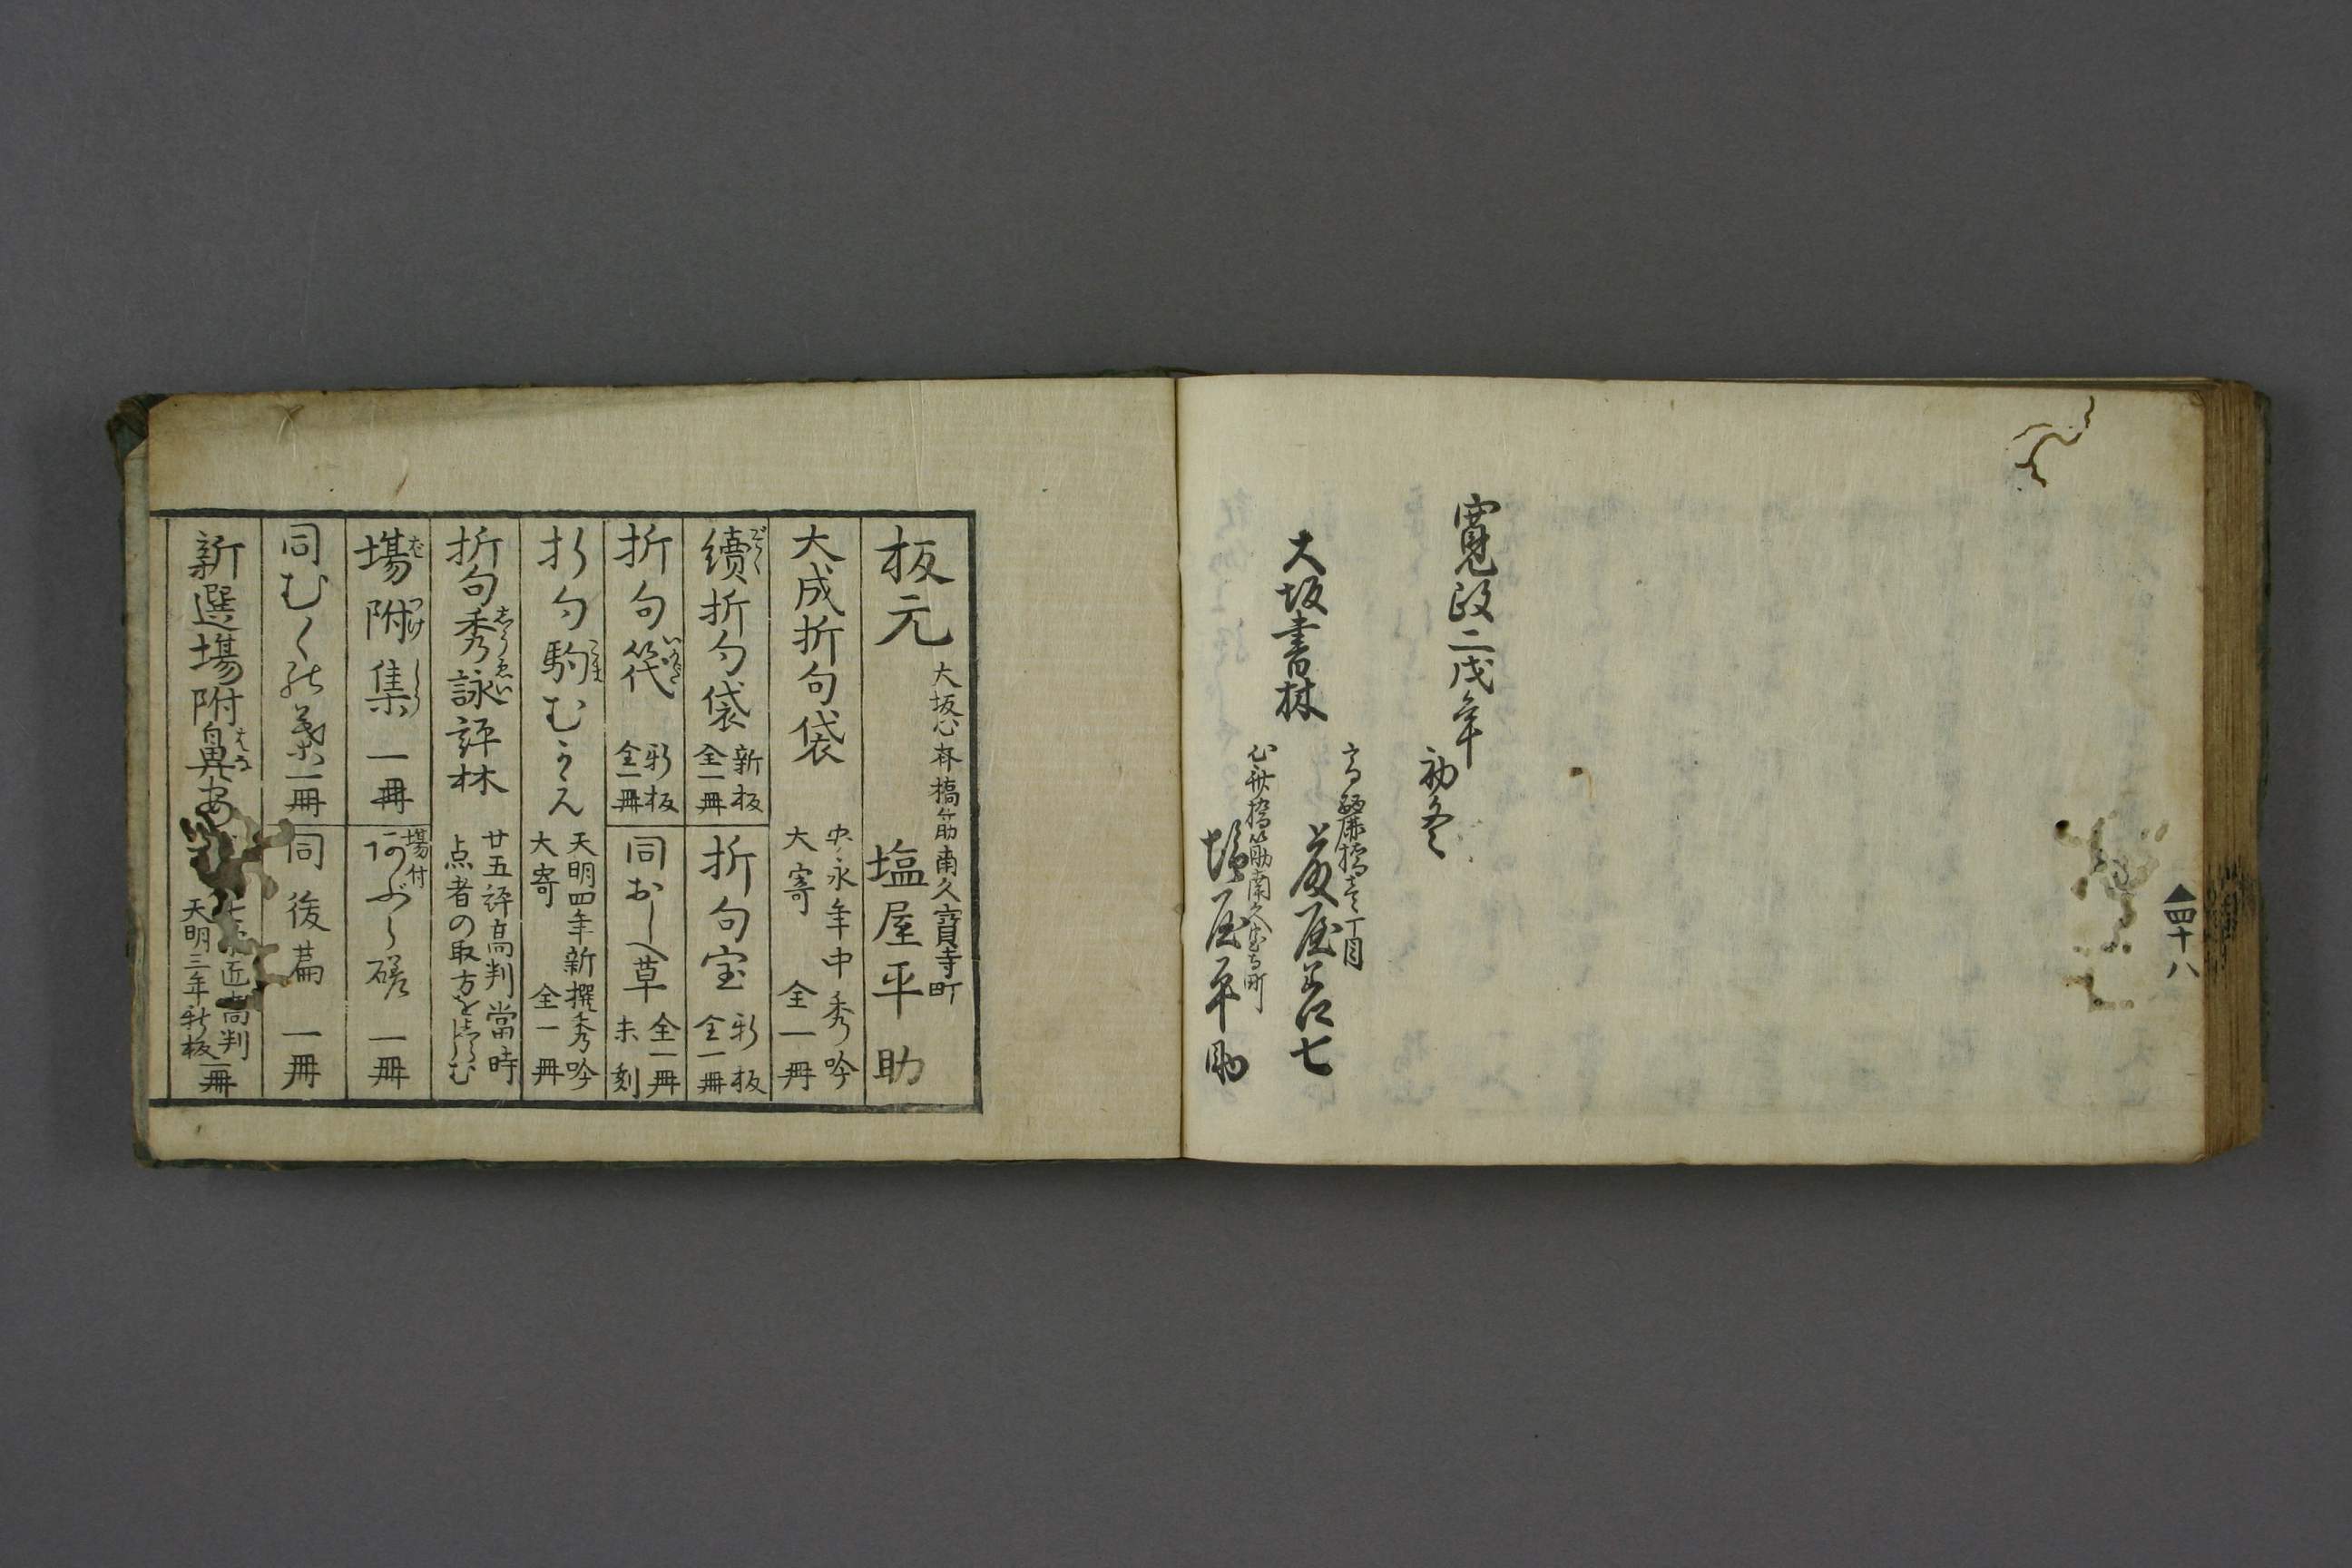 寛政二戌年
初冬
大坂書林
高麗橋壱丁目
藤屋善七
心斎橋筋南久宝寺町
塩屋平助
▲四十八
板元
大坂心斎橋筋南久寳寺町
塩屋平助
大成折句袋
安永年中秀吟
大寄 全一冊
續折句袋
ぞく
新板
全一冊
折句宝
新板
全一冊
折句筏
いかだ
新板
全一冊
同おしへ草
全一冊
未刻
折句駒むかへ
こま
天明四年新撰秀吟
大寄 全一冊
折句秀詠評林
しうゑい
廿五評高判當時
点者の取方をしらしむ
塲附集 一冊
ば つけ しう
塲付
一冊
同むくの葉 一冊
同後篇 一冊
新選塲附鼻
はな
高判
天明三年新板 一冊